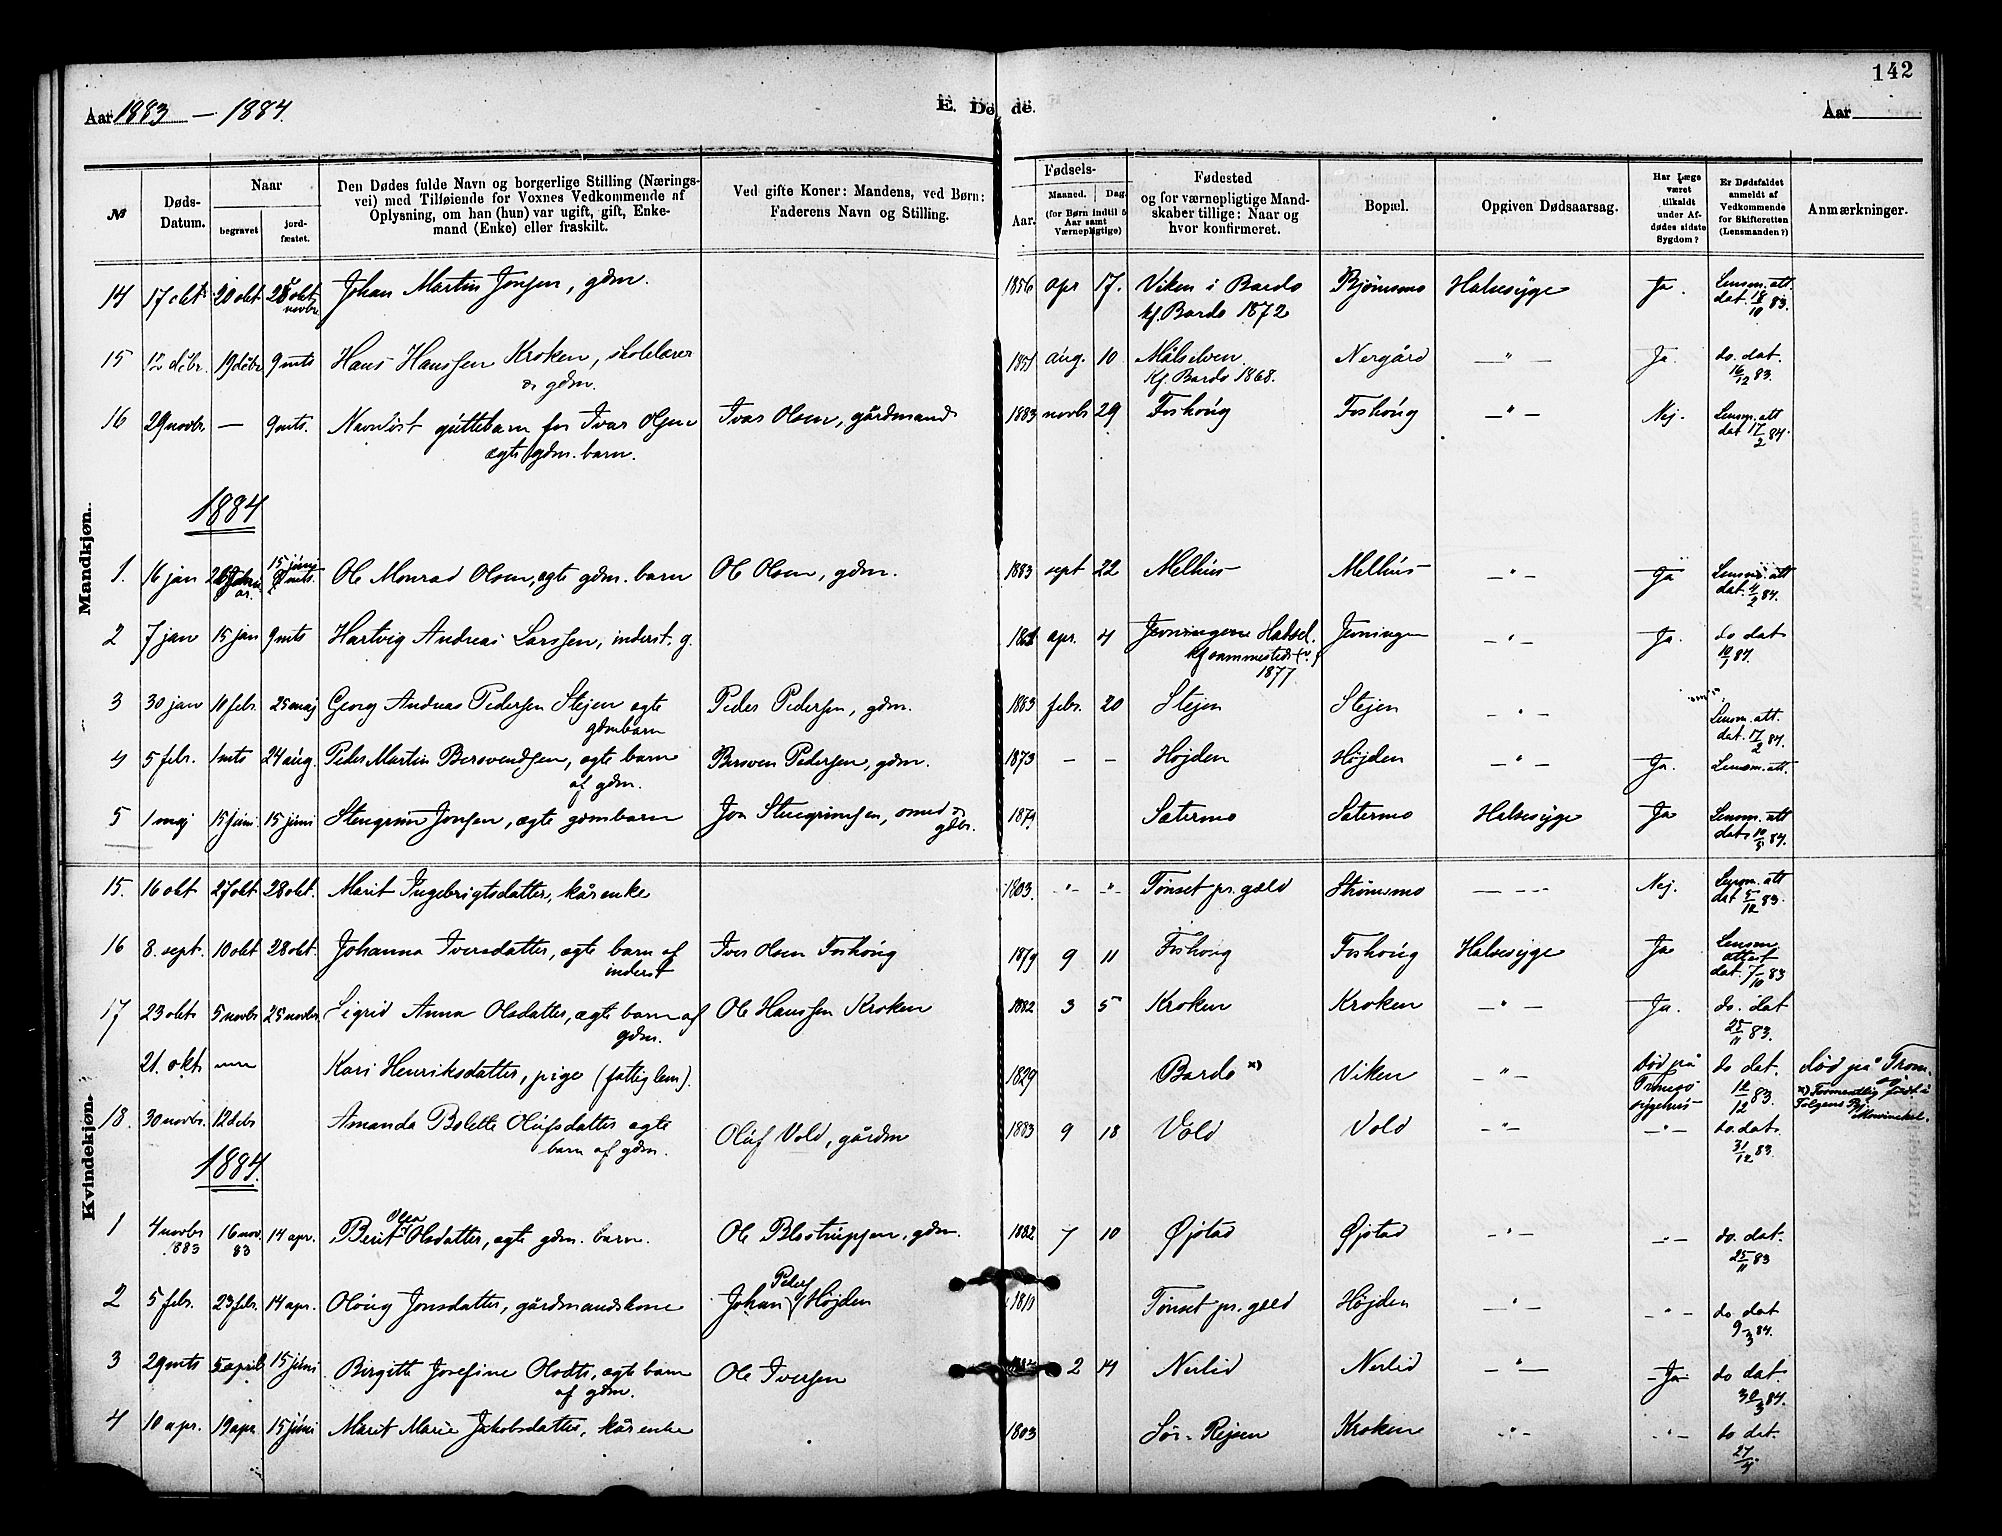 142
Aar 1883 – 1884.
E. Døde.
Aar
№
Døds-Datum.
Naar
begravet
jord-fæstet.
Den Dødes fulde Navn og borgerlige Stilling (Nærings-
vei) med Tilføiende for Voxnes Vedkommende af
Oplysning, om han (hun) var ugift, gift, Enke-
mand (Enke) eller fraskilt.
Ved gifte Koner: Mandens, ved Børn:
Faderens Navn og Stilling.
Fødsels-
Aar.
Maaned.
Dag.
(for Børn indtil 5
Aar samt
Værnepligtige)
Fødested
og for værnepligtige Mand-
skaber tillige: Naar og
hvor konfirmeret.
Bopæl.
Opgiven Dødsaarsag.
Har Læge
været
tilkaldt
under Af-
dødes sidste
Sygdom?
Er Dødsfaldet
anmeldt af
Vedkommende
for Skifteretten
(Lensmanden?)
Anmærkninger.
Mandkjøn.
14 17 okt. 20 okt Johan Martin Jonsen, gdm. 1856 apr 17. Viken i Bardo Bjørnsmo Halssyge Ja. Lensm. att.
kf. Bardo 1872 dat. 18/10 83.
15 12 debr. 19 debr 9 mts Hans Hanssen Kroken, skolelærer 1851 aug. 10 Målselven Nergård — " — Ja do. dat.
& gdm. Kf. Bardo 1868. 16/12 83.
16 29 novbr. — 9 mts. Navnløst guttebarn for Ivar Olsen Ivar Olsen, gårdmand 1883 novbr 29 Foshoug Foshoug — " — Nej. Lensm. att
ægte gdm. barn. dat 17/2 84.
1884
1. 16 jan 15 juni Ole Monrad Olsen, ægte gdm. barn Ole Olsen, gdm. 1883 sept 22 Melhus Melhus — " — Ja Lensm. att
dat. 4/2 84.
2 7 jan 15 jan 9 mts Hartvig Andreas Larssen, inderst. g. apr. 4 Jenningen Hadsel. Jenningen — " — Ja. do dat
kf sammesteds
1877
3 30 jan 10 febr. 25 maj Georg Andreas Pedersen Stejen ægte Peder Pedersen, gdm. 1883 febr. 20 Stejen Stejen — " —
gdmbarn Lensm. att.
dat. 17/2 84.
4 5 febr. 1 mts 24 aug. Peder Martin Bersvendsen, ægte barn Bersven Pedersen, gdm. 1873 — — Højden Højden — " — Ja. Lensm. att.
af gdm.
5 1 maj 15 juni 15 juni Stengrim Jonsen, ægte gdmbarn Jon Stengrimsen, smed & 1879 Sætermo Sætermo Halssyge Ja Lensm. att
gdbr. dat. 10/5 84.
Kvindekjøn.
15. 16 okt 27 okt 28 okt. Marit Ingebrigtsdatter, kårenke 1803. " " Tønset pr. gæld Strømsmo — — Nej. Lensm. att
dat 5/12 83.
16 8. sept. 10 okt 28 okt. Johanna Iversdatter, ægte barn af Iver Olsen Foshoug 1879 9 11 Foshoug Foshoug Halssyge Ja Lensm.
inderst attest
dat. 7/10 83
17 23 okt 5 novbr 25 novbr. Sigrid Anna Olsdatter, ægte barn af Ole Hanssen Kroken 1882 3 5 Kroken Kroken — " — Ja. do. dat
gdm. 25/11 83.
21. okt Kari Henriksdatter, pige (fattiglem). 1829 Bardo x) Viken — " — død på do dat. død på Trom-
Tromsø 12/12 83. x) Formentlig født i
sygehus
18. 30 novbr. 12 debr Amanda Bolette Olufsdatter ægte Oluf Vold, gårdm 1883 9 18 Vold Vold — " — — " — do. dat.
barn af gdm. 31/12 83.
1884.
1 4 novbr 16 nov. 14 apr. Berit Olea Olsdatter, ægte gdm. barn. Ole Blostrupsen, gdm. 1882 7 10 Øjstad Øjstad — " — — " — do. dat.
1883 83 25/11 83
2 5 febr. 23 febr. 14 apr. Oloug Jonsdatter, gårdmandskone Johan Peders Højden 1811 Tønset pr. gæld Højden — " — — " — do. dat
9/3 84.
3 29 mts 5 april 15 juni Birgitte Josefine Olsdtr, ægte barn Ole Iversen 2 14 Nerlid Nerlid — " — Ja do dat.
af gdm. 30/3 84.
4 10 apr. 19 apr. 15 juni Marit Marie Jakobsdatter, kårenke 1803 Sør-Rejsen Kroken — " — — " — do dat.
27/4